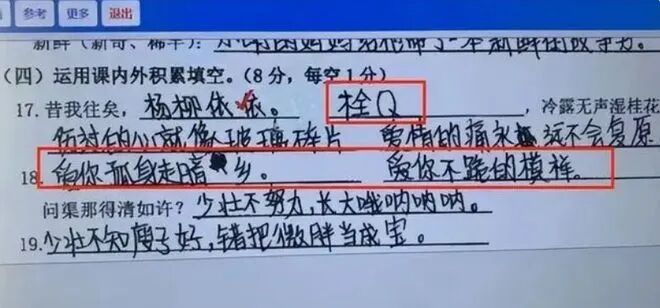 参考 更多 退出
（四）运用课内外积累填空。（8分，每空1分）
17. 昔我往矣，杨柳依依。 栓Q ，冷露无声湿桂花
伤过的心就像玻璃碎片 爱情的痛永远不会复原
18. 爱你孤身走暗乡。 爱你不跪的模样。
问渠那得清如许？少壮不努力，长大哦呐呐呐。
19. 少壮不知瘦子好，错把微胖当成宝。